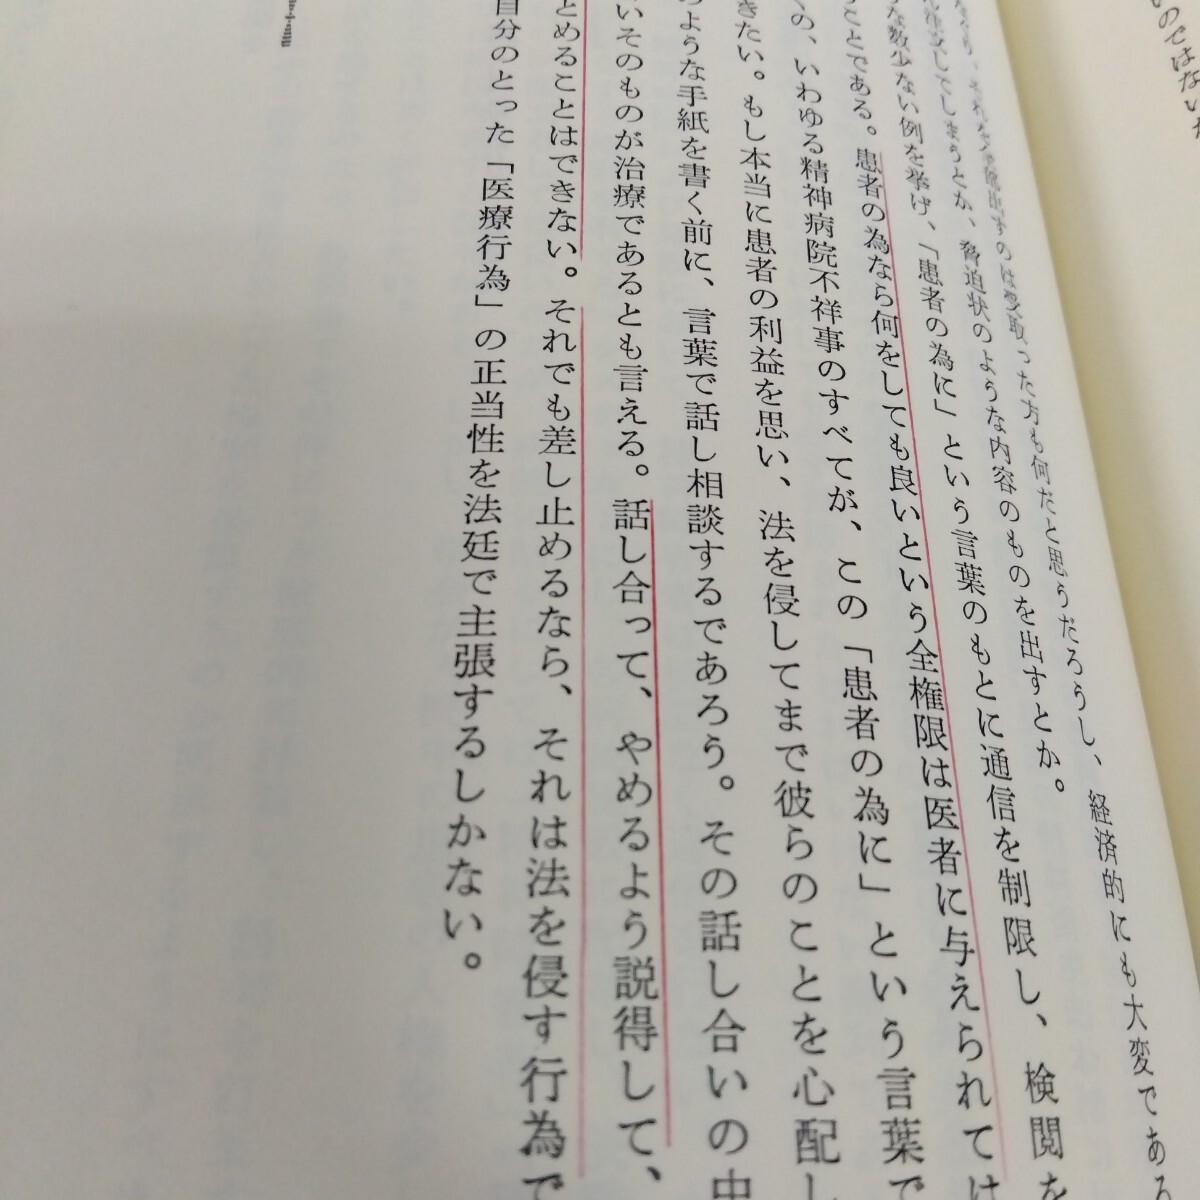 いのではないか
のは受取った方も何だと思うだろうし、経済的にも大変である
してしまうとか、脅迫状のような内容のものを出すとか。
な数少ない例を挙げ、「患者の為に」という言葉のもとに通信を制限し、検閲を
ことである。患者の為なら何をしても良いという全権限は医者に与えられては
の、いわゆる精神病院不祥事のすべてが、この「患者の為に」という言葉で
きたい。もし本当に患者の利益を思い、法を侵してまで彼らのことを心配し
のような手紙を書く前に、言葉で話し相談するであろう。その話し合いの中
いそのものが治療であるとも言える。話し合って、やめるよう説得して、
とめることはできない。それでも差し止めるなら、それは法を侵す行為で
自分のとった「医療行為」の正当性を法廷で主張するしかない。